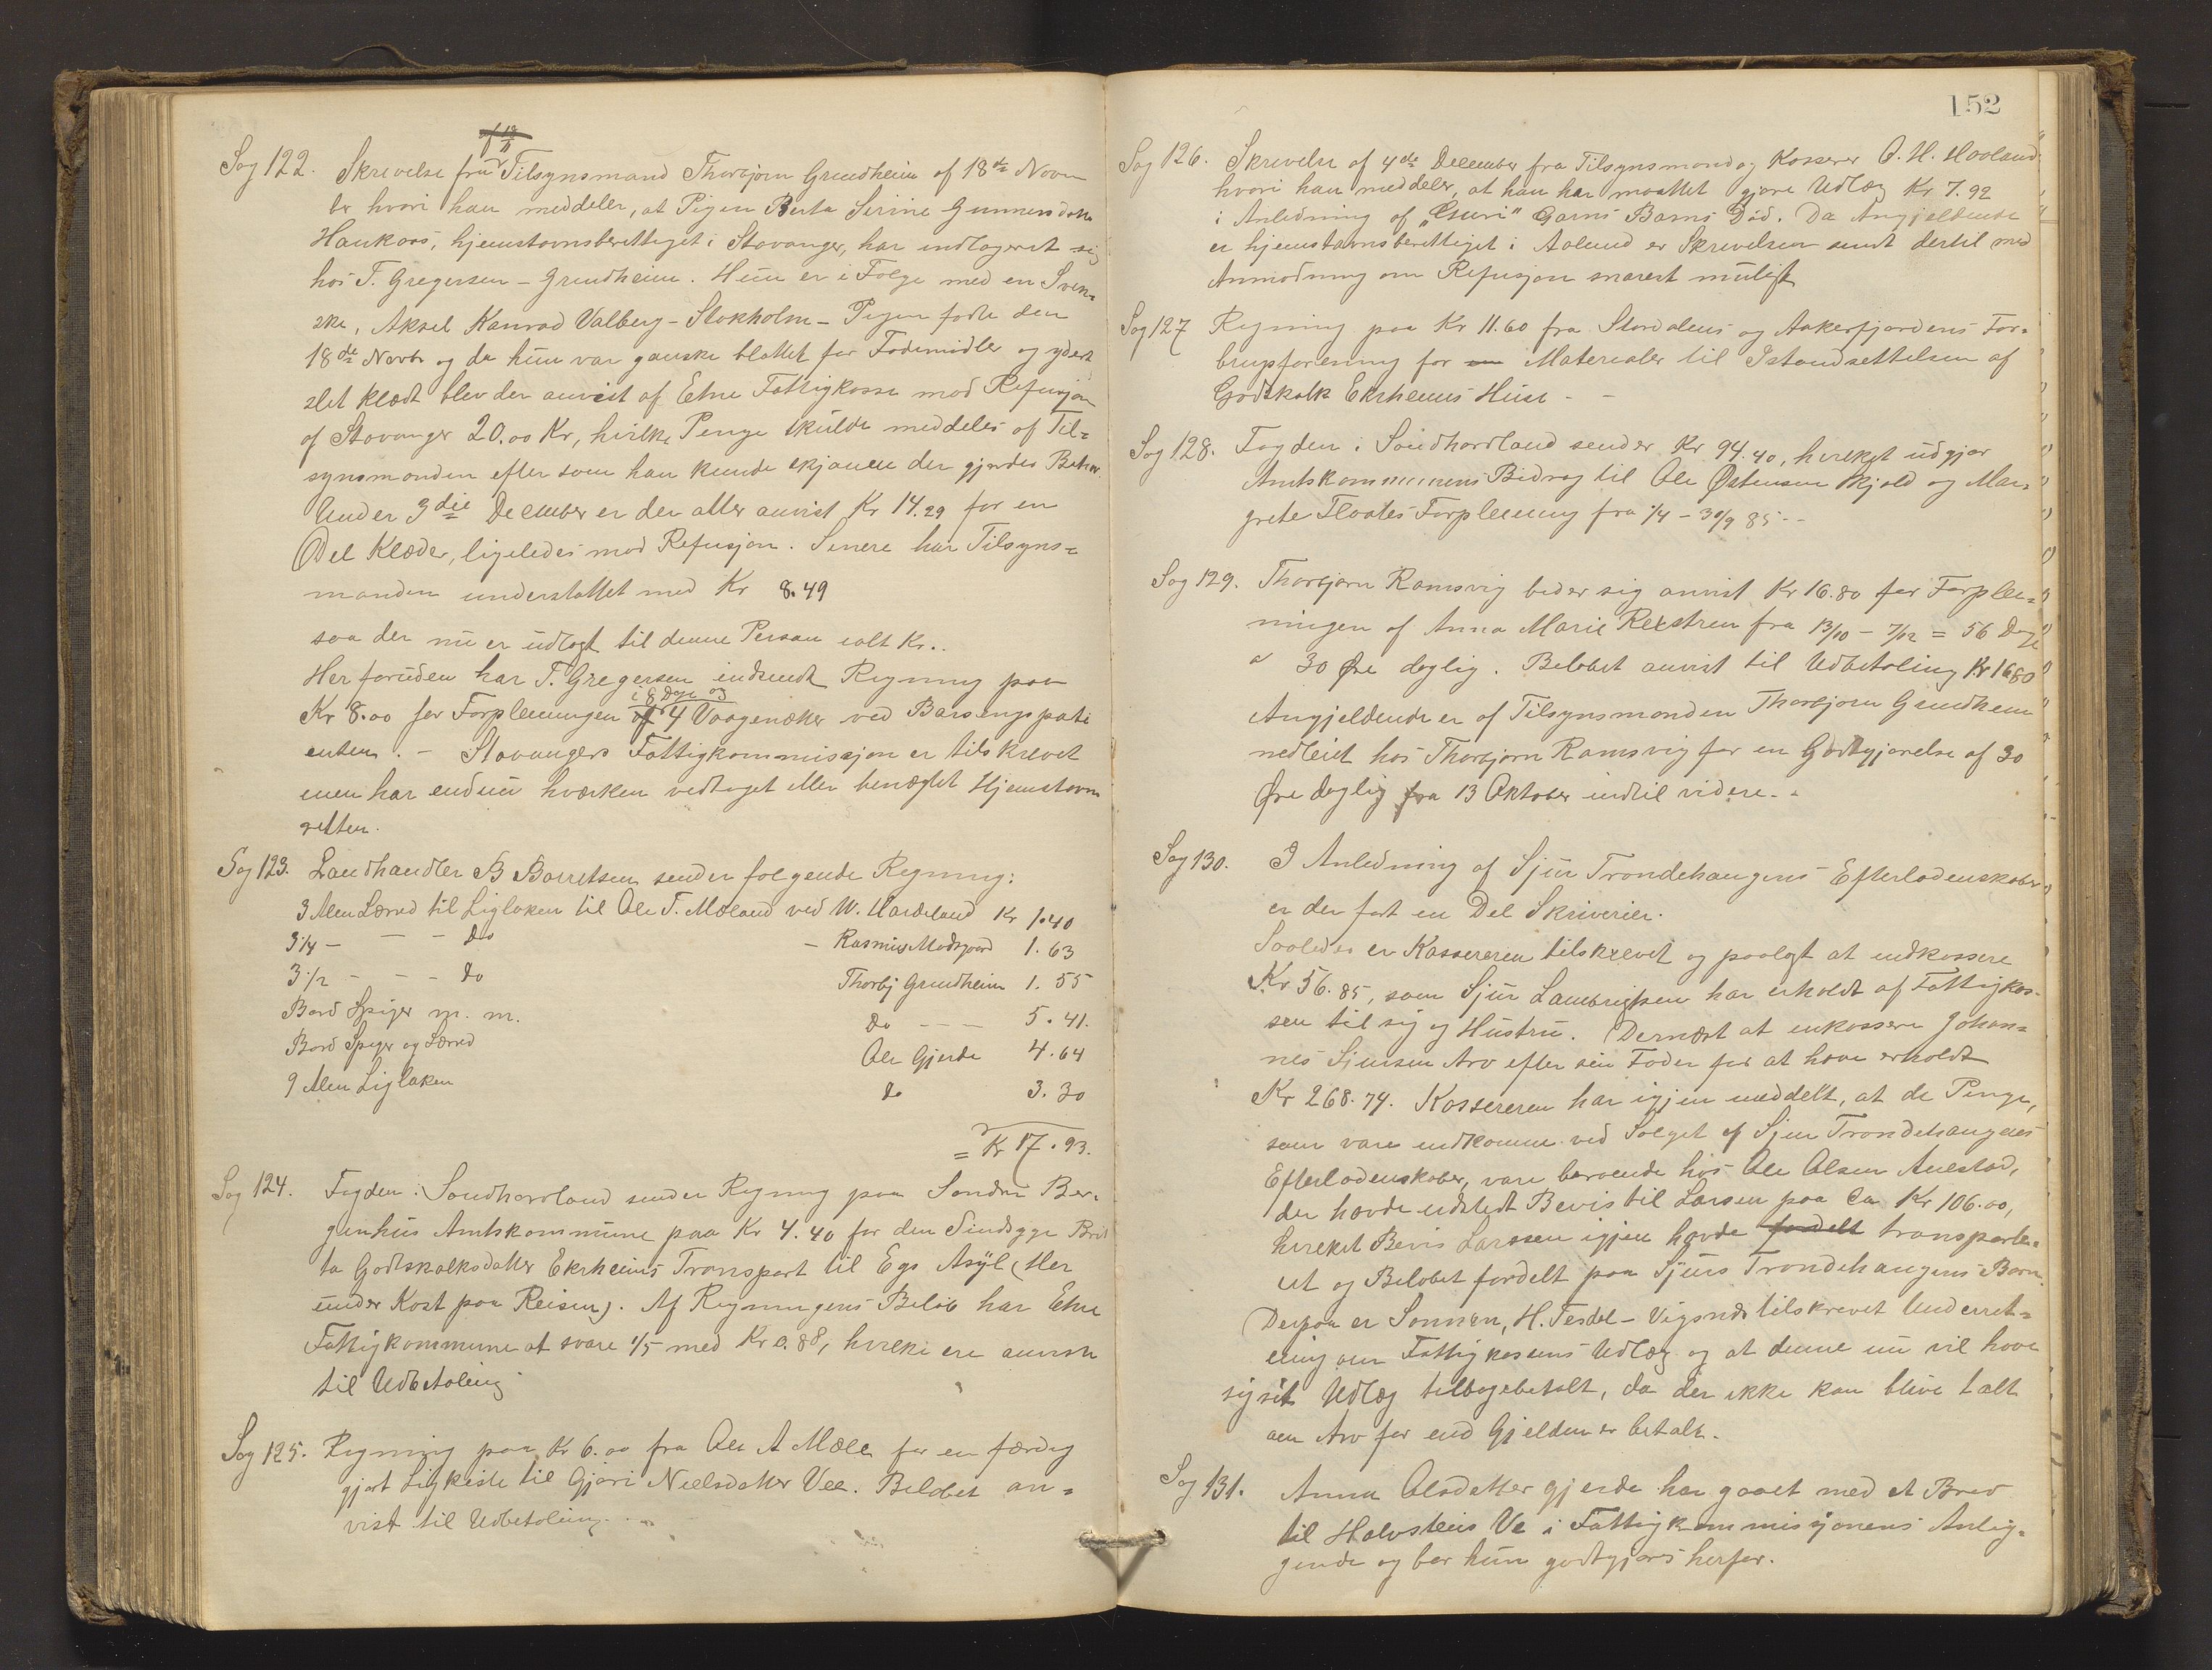 Sag 122. Skrivelse fra Tilsynsmand Thorbjørn Grindheim af 18de Novem
ber hvori han meddeler, at Pigen Berta Serine Gunnersdatter
Haukaas, hjemstavnsberettiget i Stavanger, har indlogeret sig
hos T. Gregersen - Grindheim. Hun er i Følge med en Sven-
ske, Aksel Konrad Valberg - Stokholm - Pigen fødte den
18de Novbr og da hun var ganske blottet for Fødemidler og yderst
slet klædt blev der anvist af Etne Fattigkasse mod Refusjon
af Stavanger 20.00 Kr, hvilke Penge skulde meddeles af Til=
synsmanden efter som han kunde skjønne der gjordes Behov.
Under 3die December er der atter anvist Kr 14.29 for en
Del Klæder, ligeledes mod Refusjon. Senere har Tilsyns=
manden understøttet med Kr 8.49
saa der nu er udlagt til denne Person ialt Kr..
Herforuden har T. Gregersen indsendt Regning paa
Kr 8.00 for Forpleiningen i 8 Dage og 4 Vaagenætter ved Barsengspati
enten. - Stavangers Fattigkommissjon er tilskrevet
men har endnu hværken vedtaget eller benægtet Hjemstavns
retten.
Sag 123. Landhandler B Børretsen sender følgende Regning:
3 Alen Lærred til Liglaken til Ole T. Mæland ved W. Hardeland Kr 1.40
3 1/4 - - - do - Rasmus Madsgaard 1.63
3 1/2 - - - do Thorbj Grindheim 1.55
Bord Spiger m. m. do - - - 5.41.
Bord Spiger og Lærred Ole Gjerde 4.64
9 Alen Liglaken do 3.30
= Kr 17.93.
Sag 124. Fogden i Søndhordland sender Regning paa Søndre Ber-
genhus Amtskommune paa Kr 4.40 for den Sindsyge Brit
ta Godtskalksdatter Ekrheims Transport til Egs Asyl (Her
under Kost paa Reisen). Af Regningens Beløb har Etne
Fattigkommune at svare 1/5 med Kr 0.88, hvilke ere anviste
til Udbetaling
Sag 125. Regning paa Kr 6.00 fra Ole A Mæle for en færdig
gjort Ligkiste til Gjøri Neelsdatter Vee. Beløbet an=
vist til Udbetaling. ..
152
Sag 126. Skrivelse af 4de December fra Tilsynsmand og Kasserer O. H. Haaland
hvori han meddeler, at han har maattet gjøre Udlæg Kr 7.92
i Anledning af "Guri" Garns Barns Død. Da Angjeldende
er hjemstavnsberettiget i Aalund er Skrivelsen sendt dertil med
Anmodning om Refusjon snarest muligt
Sag 127 Regning paa Kr 11.60 fra Stordalens og Aakerfjordens For-
brugsforening for Materialer til Istandsettelsen af
Godtskalk Ekrheims Huse - -
Sag 128. Fogden i Søndhordland sender Kr 94.40, hvilket udgjør
Amtskommunens Bidrag til Ole Østensen Skjold og Mar-
grete Floates Forpleining fra 1/4 - 30/9 85 - -
Sag 129. Thorbjørn Ramsvig beder sig anvist Kr 16.80 for Forplei-
ningen af Anna Marie Rekstren fra 13/10 - 7/12 = 56 Dage
a 30 Øre daglig. Beløbet anvist til Udbetaling Kr 16.80
Angjeldende er af Tilsynsmanden Thorbjørn Grindheim
nedleiet hos Thorbjørn Ramsvig for en Godtgjørelse af 30
Øre daglig fra 13 Oktober indtil videre. -
Sag 130. I Anledning af Sjur Trondehaugens Efterladenskaber
er der ført en Del Skriverier.
Saaledes er Kassereren tilskrevet og paalagt at indkassere
Kr 56.85, som Sjur Lambrigtsen har erholdt af Fattigkas-
sen til sig og Hustru. Dernæst at inkassere Johan=
nes Sjursen Arv efter sin Fader for at have erholdt
Kr 268.74. Kassereren har igjen meddelt, at de Penge,
som vare indkomne ved Salget af Sjur Trondehaugens
Efterladenskaber, vare beroende hos Ole Olsen Auestad,
der havde udstedt Bevis til Larsen paa Ca Kr 106.00,
hvilket Bevis Larssen igjen havde fordelt transporte-
ret og Beløbet fordelt paa Sjurs Trondehaugens Børn.
Derpaa er Sønnen, H. Tesdal - Vigsnæs tilskrevet Underret-
ning om Fattigkassens Udlæg og at denne nu vil have
sig sit Udlæg tilbagebetalt, da der ikke kan blive talt
om Arv før end Gjelden er betalt.
Sag 131. Anna Olsdatter Gjerde har gaaet med et Brev
til Halvsteins Ve i Fattigkommissjonens Anlig=
gende og bør hun godtgjøres herfor.